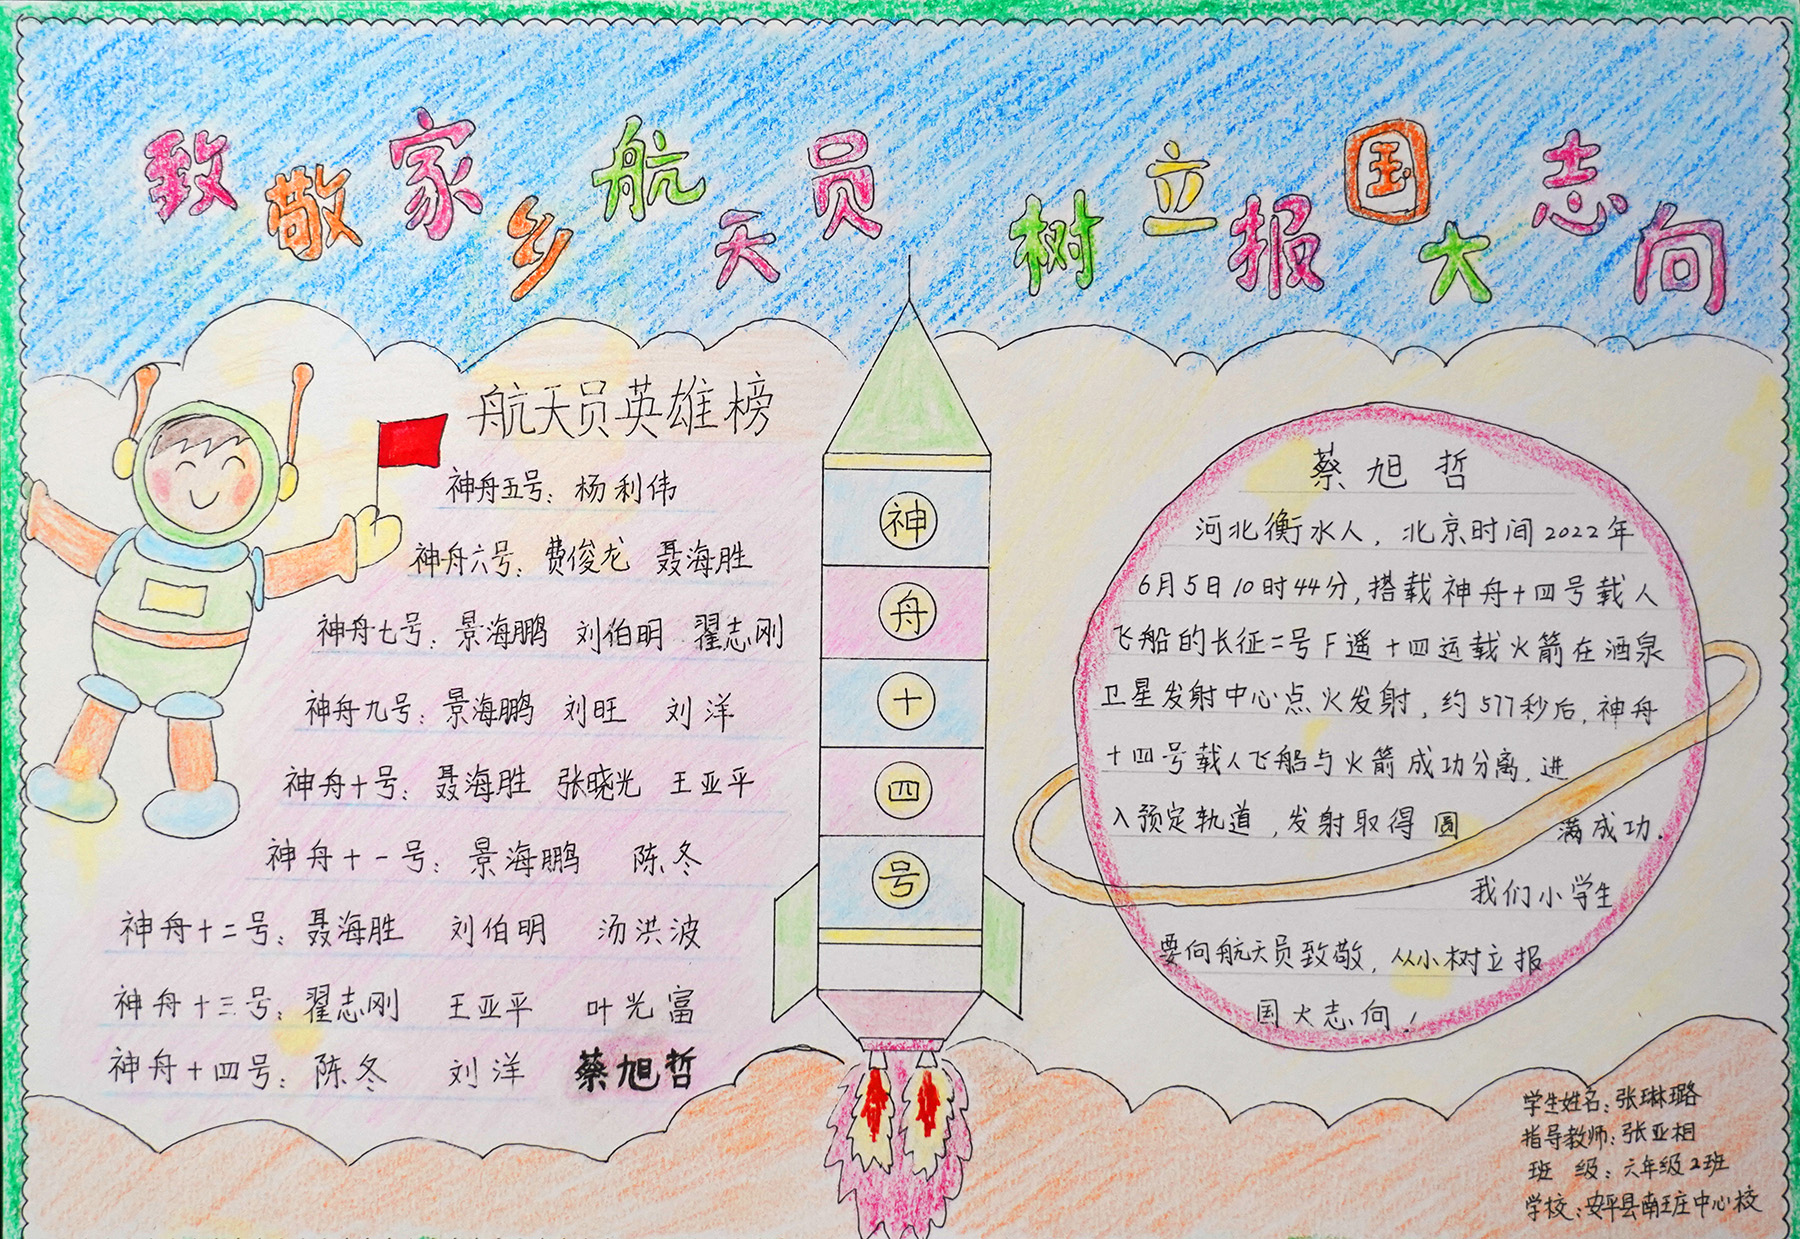 致敬家乡航天员 树立报国大志向
航天员英雄榜
神舟五号：杨利伟
神舟六号：费俊龙 聂海胜
神舟七号：景海鹏 刘伯明 翟志刚
神舟九号：景海鹏 刘旺 刘洋
神舟十号：聂海胜 张晓光 王亚平
神舟十一号：景海鹏 陈冬
神舟十二号：聂海胜 刘伯明 汤洪波
神舟十三号：翟志刚 王亚平 叶光富
神舟十四号：陈冬 刘洋 蔡旭哲
神
舟
十
四
号
蔡旭哲
河北衡水人，北京时间2022年
6月5日10时44分,搭载神舟十四号载人
飞船的长征二号F遥十四运载火箭在酒泉
卫星发射中心点火发射，约577秒后,神舟
十四号载人飞船与火箭成功分离,进
入预定轨道，发射取得圆满成功.
我们小学生
要向航天员致敬，从小树立报
国大志向！
学生姓名：张琳璐
指导教师：张亚相
班 级：六年级2班
学校：安平县南王庄中心校